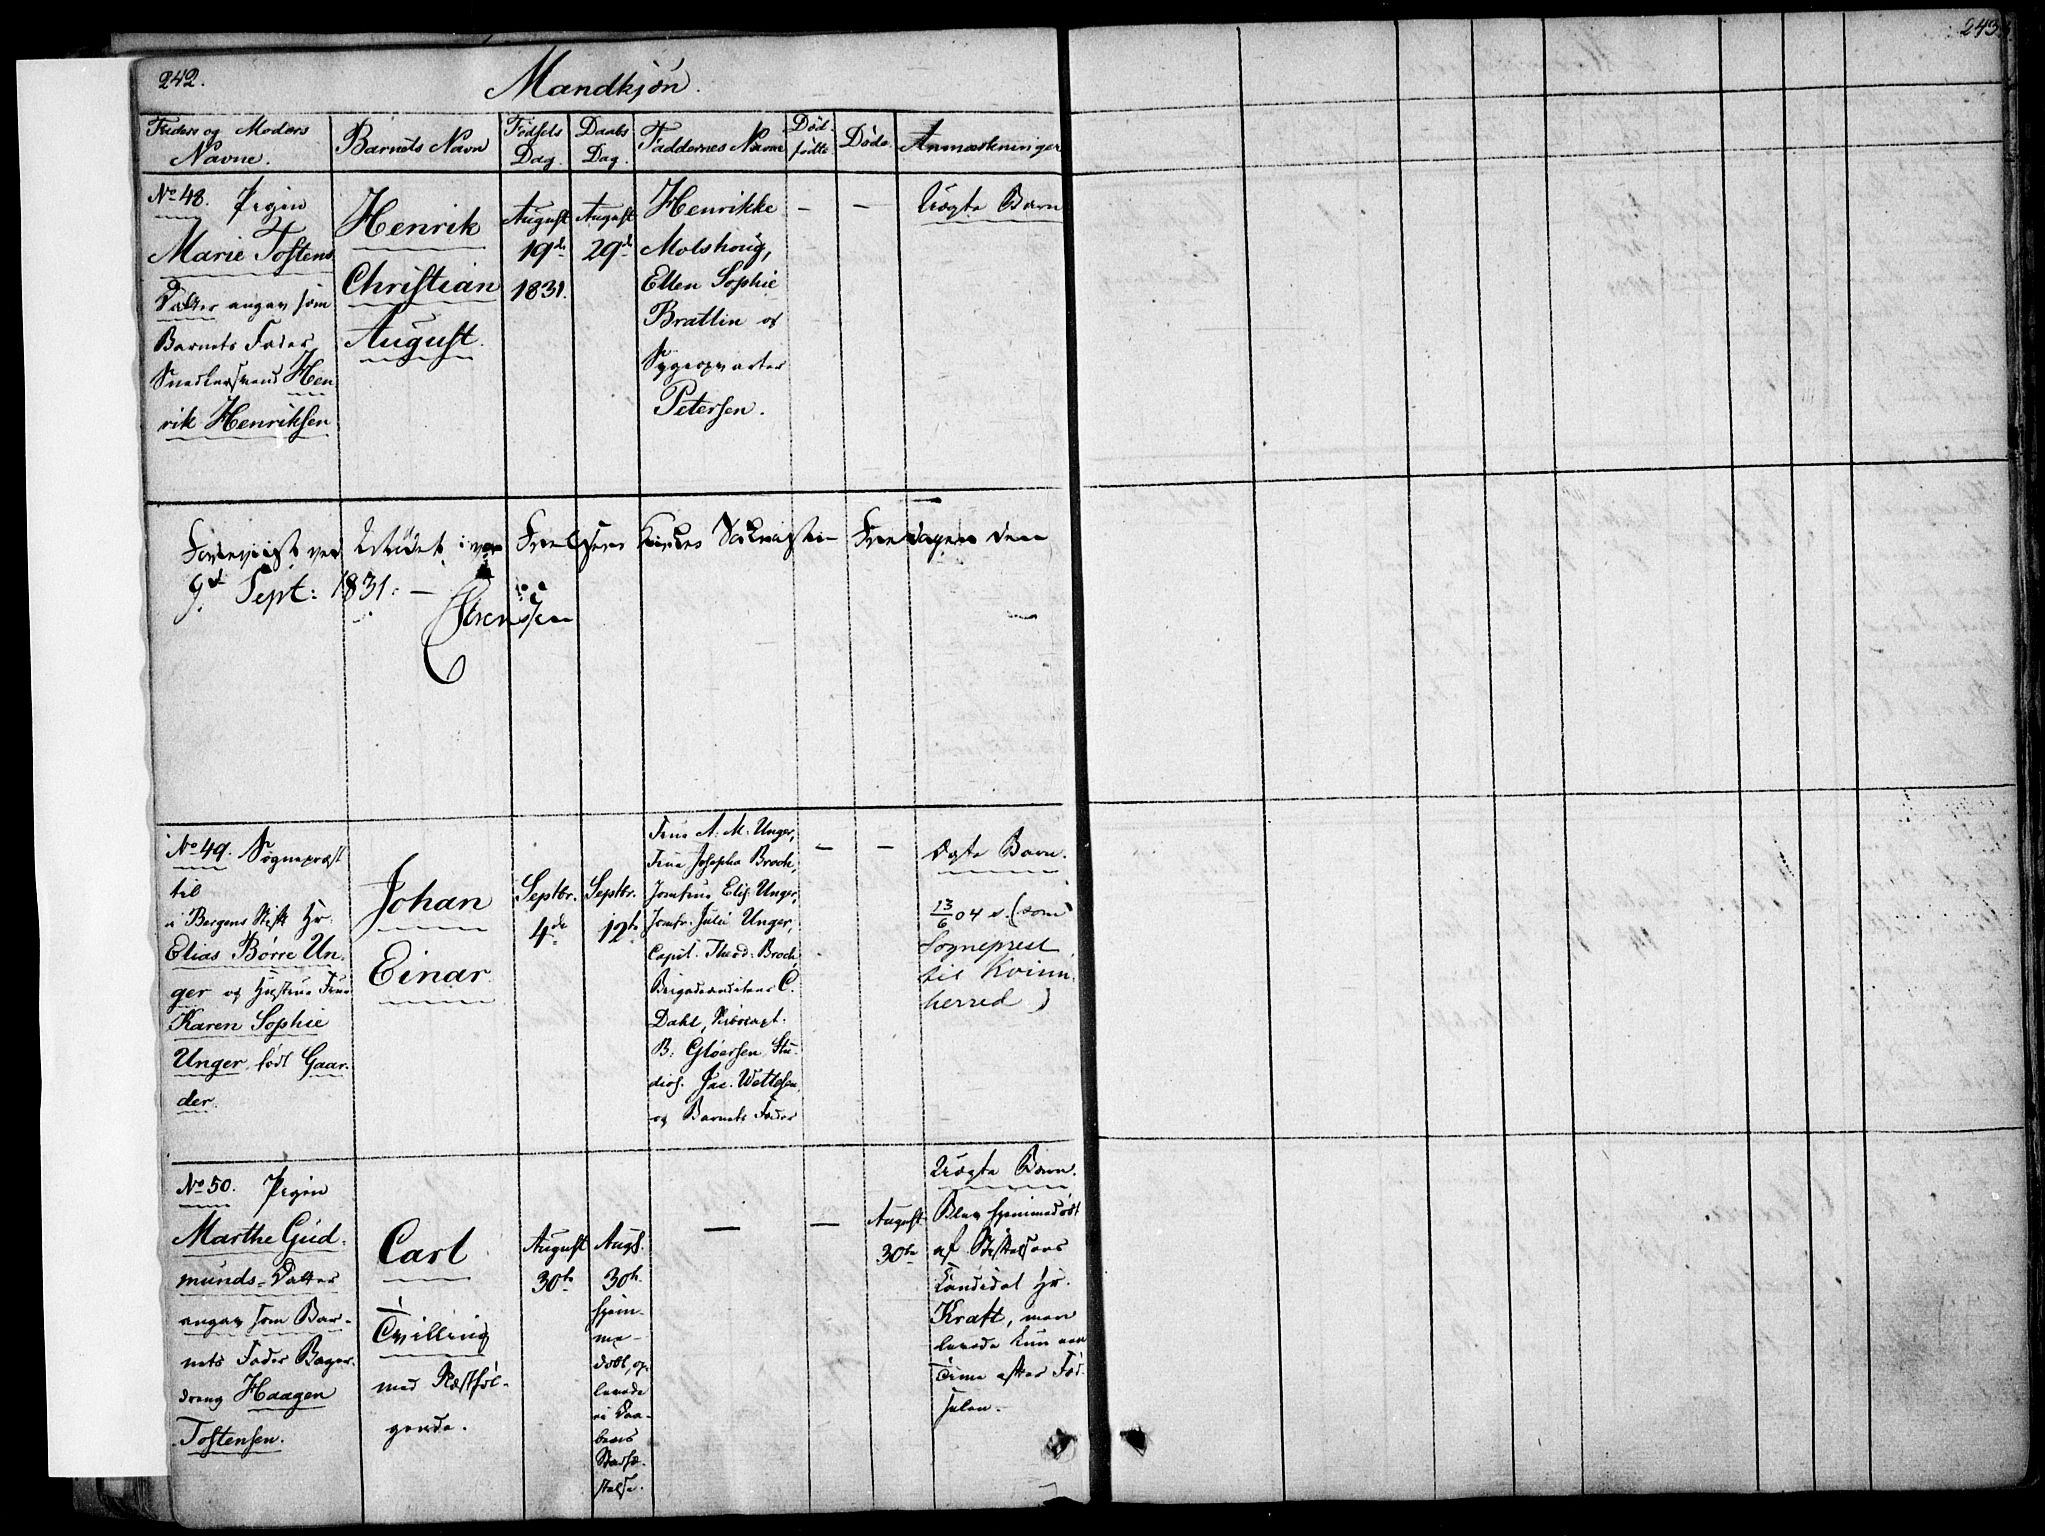 242.
Mandkjøn.
243.
Faders og Moders
Navne.
Barnets Navn
Fødsels
Dag.
Daabs
Dag.
Faddernes Navne
Død-
fødte
Døde.
Anmærkninger
No 48. Pigen
Marie Tostens
Datter angav som
Barnets Fader
Snedkersvend Hen
rik Henriksen
Henrik
Christian
August.
August
19de
1831.
August
29de
Henrikke
Molshoug,
Ellen Sophie
Brattlin og
Sygeopvarter
Petersen.
–
–
Uægte Barn
Foreviist ved Mødet i vor Frelsers Kirkes Sakristie Fredagen den
9de Sept: 1831. –
Sørenssen
No 49. Sognepræst
til
i Bergens Stift Hr.
Elias Børre Un-
ger og Hustrue Frue
Karen Sophie
Unger, født Gaar-
der.
Johan
Einar.
Septbr.
4de
Septbr.
12te
Frue A. M. Unger,
Frue Josepha Broch,
Jomfrue Elis. Unger,
Jomfr. Julie Unger,
Capit. Theod. Broch,
Brigadeauditeur C.
Dahl,
B. Gløersen Stu-
dios. Jac. Wettesen,
og Barnets Fader
–
–
Ægte Barn.
13/6 04 (som
Sogneprest
til Kvinn-
herred)
No 50. Pigen
Marthe Gud-
munds-Datter
angav som Bar-
nets Fader Bager-
dreng Haagen
Tostensen.
Carl
Tvilling
med Næstføl-
gende.
August
30te
Augs.
30te
hjem-
me-
døbt, op-
levede
ei Daa-
bens
Stadfæ-
stelse.
–
–
August
30te
Uægte Barn.
Blev hjemmedøbt
af Stiftelsens
Candidat Hr.
Kraft, men
levede kun een
Time efter Fød-
selen.